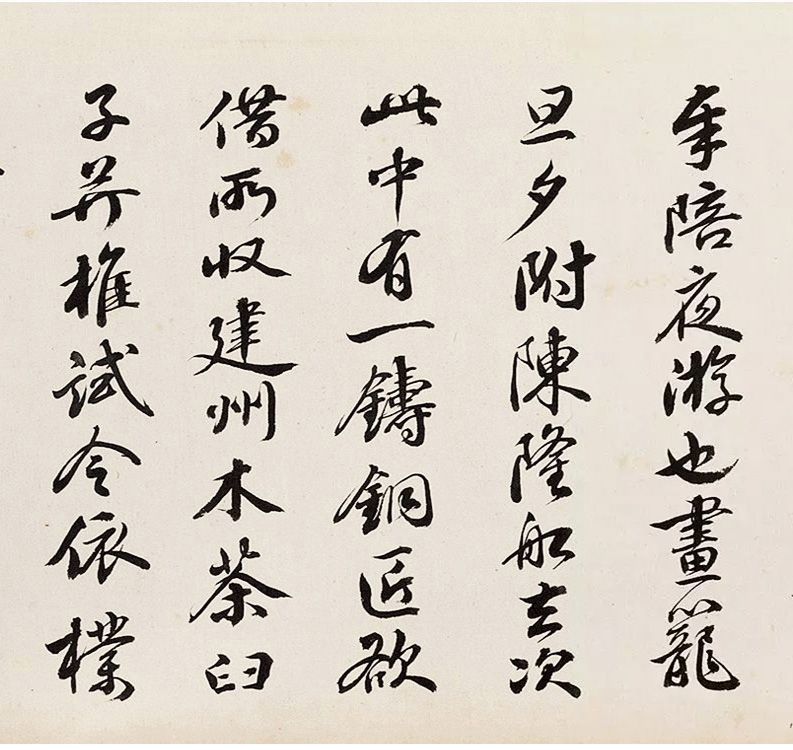 奉陪夜游也畫籠
旦夕附陳隆船去次
此中有一鑄銅匠欲
借所收建州木茶臼
子并椎試令依樣